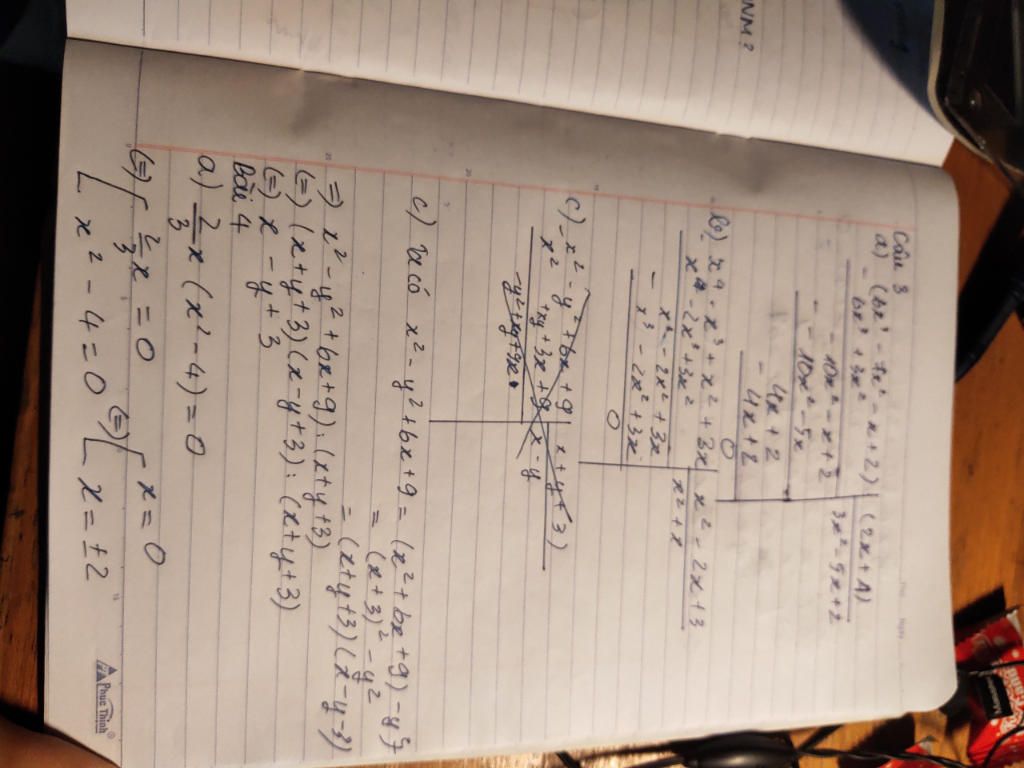 NM ?
Câu 3
a) - (6x³ - 7x² - x + 2) | (2x + 1)
6x³ + 3x² | 3x² - 5x + 2
- - 10x² - x + 2
- 10x² - 5x
- 4x + 2
4x + 2
0
b) x⁴ - x³ + x² + 3x | x² - 2x + 3
x⁴ - 2x³ + 3x² | x² + x
- x³ - 2x² + 3x
x³ - 2x² + 3x
0
c) - x² - y² + 6x + 9 | x + y + 3)
x² + xy + 3x + 9 | x - y
- y² + xy + 9x
c) Ta có x² - y² + 6x + 9 = (x² + 6x + 9) - y²
= (x + 3)² - y²
= (x + y + 3)(x - y - 3)
=) x² - y² + 6x + 9) : (x + y + 3)
(=) (x + y + 3)(x - y + 3) : (x + y + 3)
(=) x - y + 3
Bài 4
a) 2/3 x (x² - 4) = 0
(=) [ 2/3 x = 0 (=) [ x = 0
x² - 4 = 0 x = ± 2
Phúc Thịnh